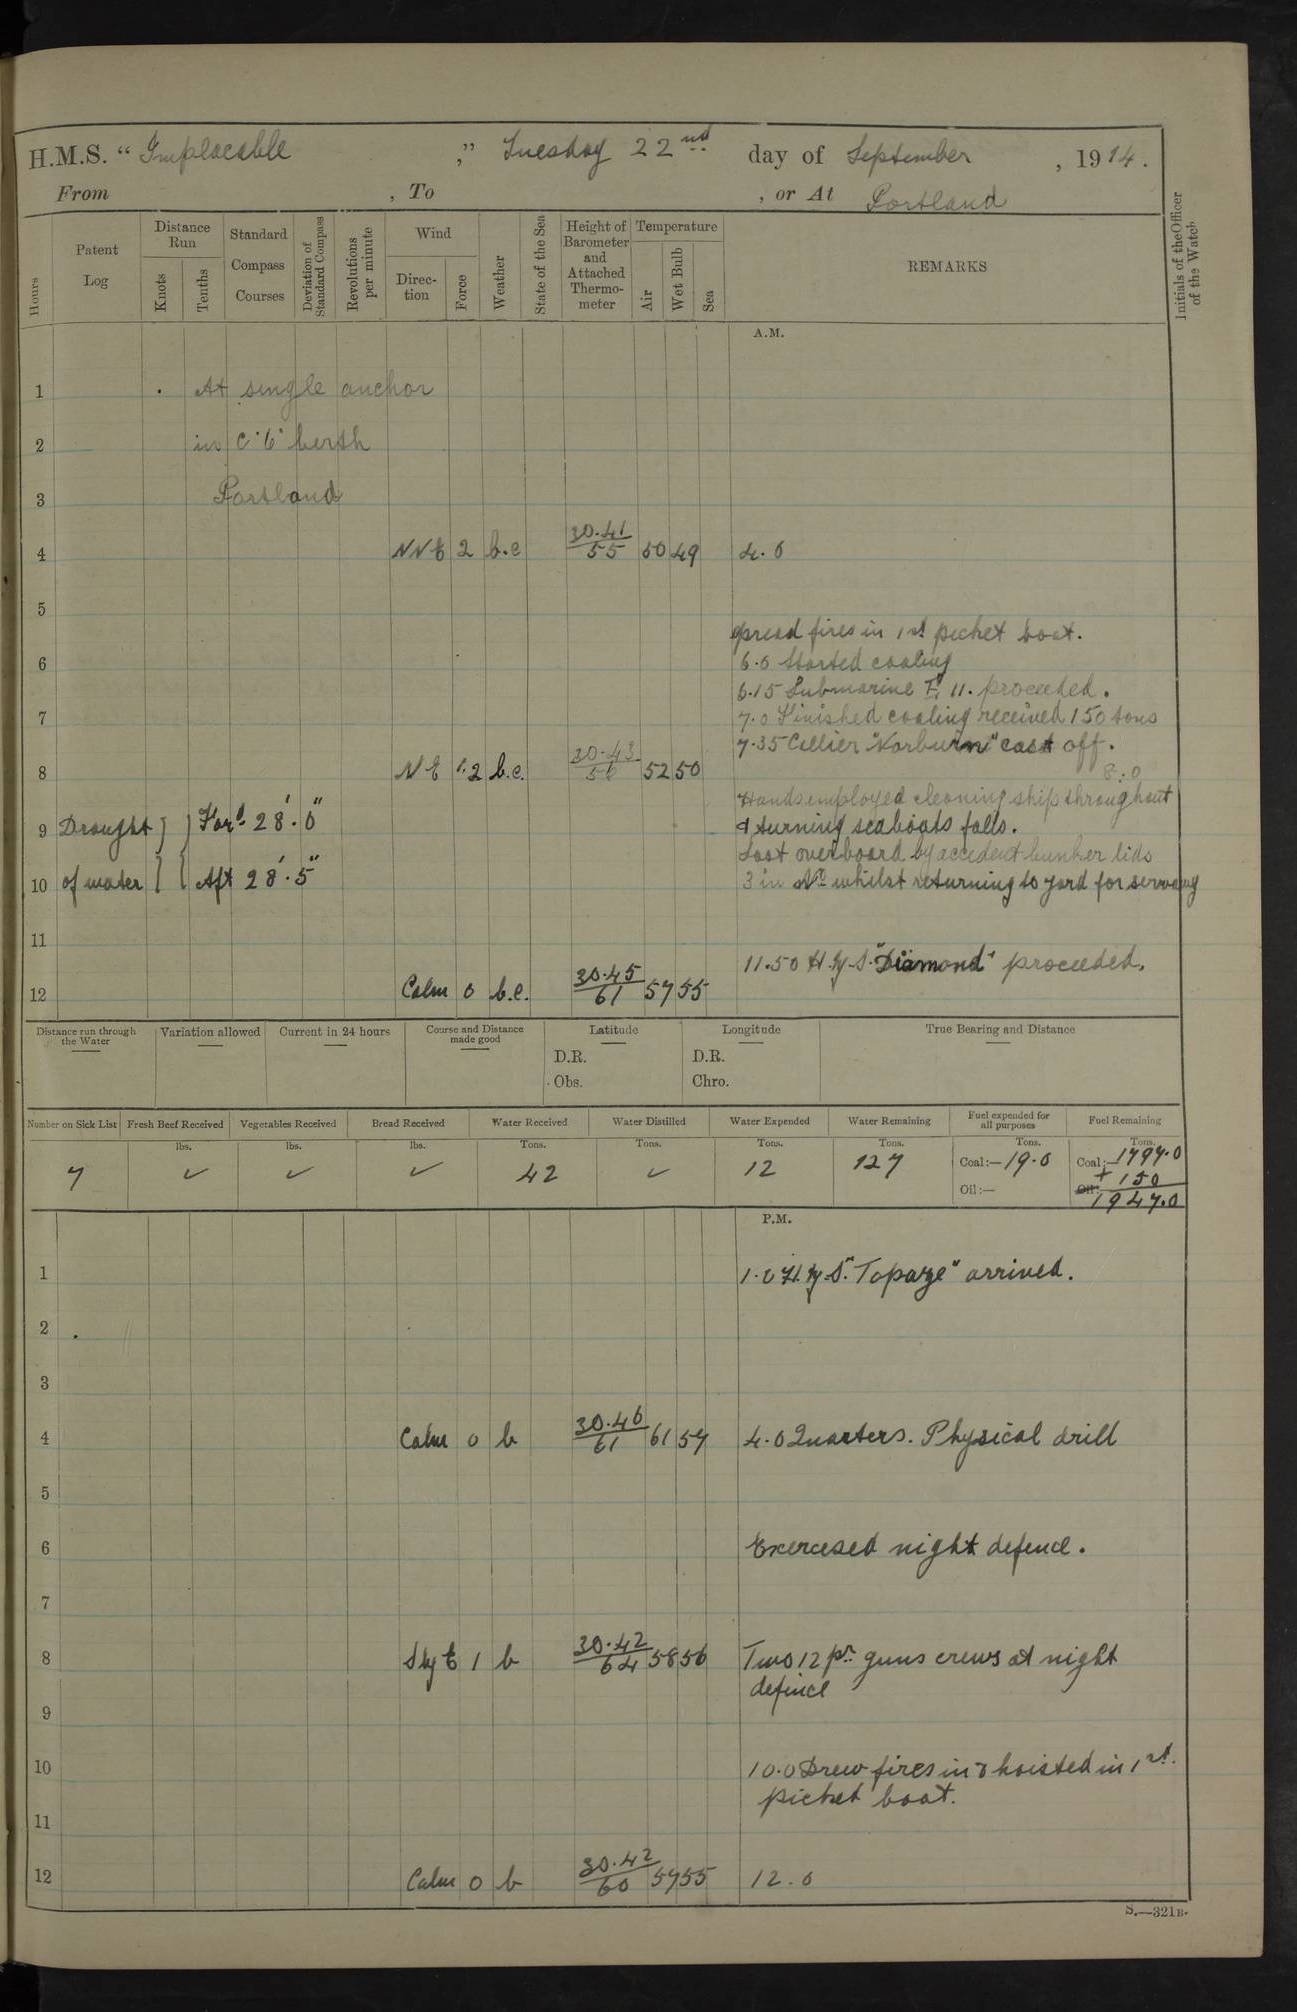 H.M.S. "Implacable," Tuesday 22nd day of September, 1914.
From , To , or At Portland
Hours
Patent Log
Distance Run
Knots
Tenths
Standard Compass Courses
Deviation of Standard Compass
Revolutions per minute
Wind
Direction
Force
Weather
State of the Sea
Height of Barometer and Attached Thermometer
Temperature
Air
Wet Bulb
Sea
REMARKS
Initials of the Officer of the Watch
A.M.
1 At single anchor
2 in C·6· berth
3 Portland
4 NNE 2 b.c 30.41/55 50 49 4.0
5
spread fires in 1st picket boat.
6
6.0 Started coaling
6.15 Submarine E 11. proceeded.
7 7.0 Finished coaling received 150 tons
7.35 Collier "Norburn" cast off.
8 NE 1.2 b.c. 30.43/56 52 50 8:0
Hands employed cleaning ship throughout
9 Draught For'd 28'.0" & turning seaboats falls.
Lost overboard by accident bunker lids
10 of water Aft 28'.5" 3 in No whilst returning to yard for
11
11.50 H.M.S. "Diamond" proceeded.
12 Calm 0 b.c. 30.45/61 57 55
Distance run through the Water
Variation allowed
Current in 24 hours
Course and Distance made good
Latitude
D.R.
Obs.
Longitude
D.R.
Chro.
True Bearing and Distance
Number on Sick List
Fresh Beef Received
Vegetables Received
Bread Received
Water Received
Water Distilled
Water Expended
Water Remaining
Fuel expended for all purposes
Fuel Remaining
lbs. lbs. lbs. Tons. Tons. Tons. Tons. Tons. Tons.
7 ✓ ✓ ✓ 42 ✓ 12 127 Coal:—19.0 Coal:—1797.0
+ 150
Oil:— Oil: 1947.0
P.M.
1 1.0 H.M.S. "Topaze" arrived.
2
3
4 Calm 0 b 30.46/61 61 57 4.0 Quarters. Physical drill
5
6 Exercised night defence.
7
8 SbyE 1 b 30.42/64 58 56 Two 12 pr guns crews at night
defence
9
10 10.0 Drew fires in & hoisted in 1st.
picket boat.
11
12 Calm 0 b 30.42/60 57 55 12.0
S.—321B.